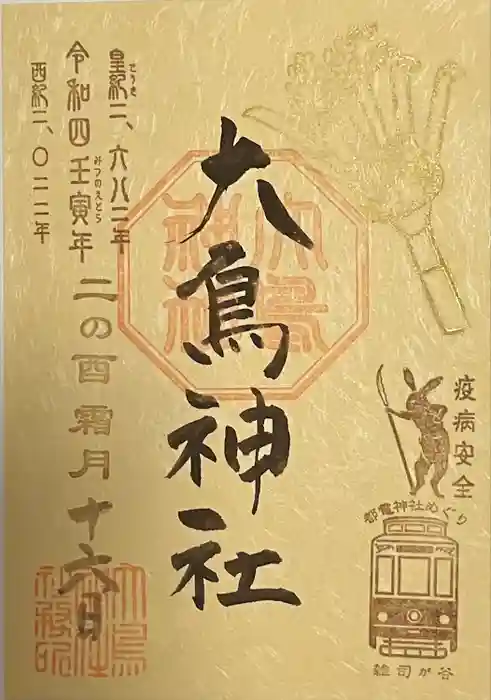 疫病安全
都電神社めぐり
雑司が谷
大鳥神社
大鳥神社
皇紀二、六八二年
こうき
令和四壬寅年
みづのえとら
西紀二、〇二二年
二の酉霜月十六日